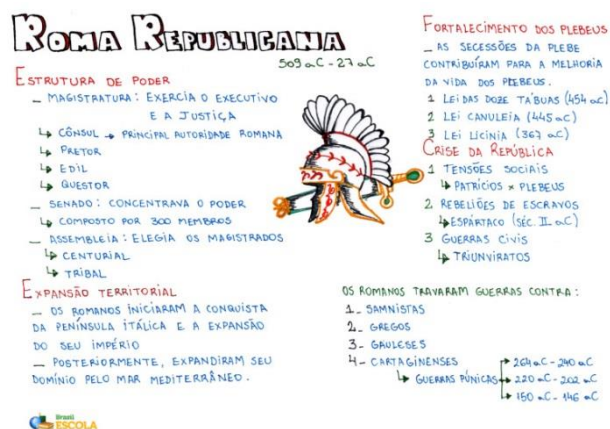 ROMA REPUBLICANA
509 aC - 27 aC
ESTRUTURA DE PODER
_ MAGISTRATURA: EXERCIA O EXECUTIVO
E A JUSTIÇA
↳ CÔNSUL → PRINCIPAL AUTORIDADE ROMANA
↳ PRETOR
↳ EDIL
↳ QUESTOR
_ SENADO: CONCENTRAVA O PODER
↳ COMPOSTO POR 300 MEMBROS
_ ASSEMBLEIA: ELEGIA OS MAGISTRADOS
↳ CENTURIAL
↳ TRIBAL
EXPANSÃO TERRITORIAL
_ OS ROMANOS INICIARAM A CONQUISTA
DA PENÍNSULA ITÁLICA E A EXPANSÃO
DO SEU IMPÉRIO
_ POSTERIORMENTE, EXPANDIRAM SEU
DOMÍNIO PELO MAR MEDITERRÂNEO.
FORTALECIMENTO DOS PLEBEUS
_ AS SECESSÕES DA PLEBE
CONTRIBUÍRAM PARA A MELHORIA
DA VIDA DOS PLEBEUS.
1 LEI DAS DOZE TÁBUAS (454 aC)
2 LEI CANULEIA (445 aC)
3 LEI LICÍNIA (367 aC)
CRISE DA REPÚBLICA
1 TENSÕES SOCIAIS
↳ PATRÍCIOS × PLEBEUS
2 REBELIÕES DE ESCRAVOS
↳ ESPÁRTACO (SÉC. II aC)
3 GUERRAS CIVIS
↳ TRIUNVIRATOS
OS ROMANOS TRAVARAM GUERRAS CONTRA:
1_ SAMNISTAS
2_ GREGOS
3_ GAULESES
4_ CARTAGINENSES
↳ GUERRAS PÚNICAS
→ 264 aC - 240 aC
→ 220 aC - 202 aC
→ 150 aC - 146 aC
Brasil
ESCOLA